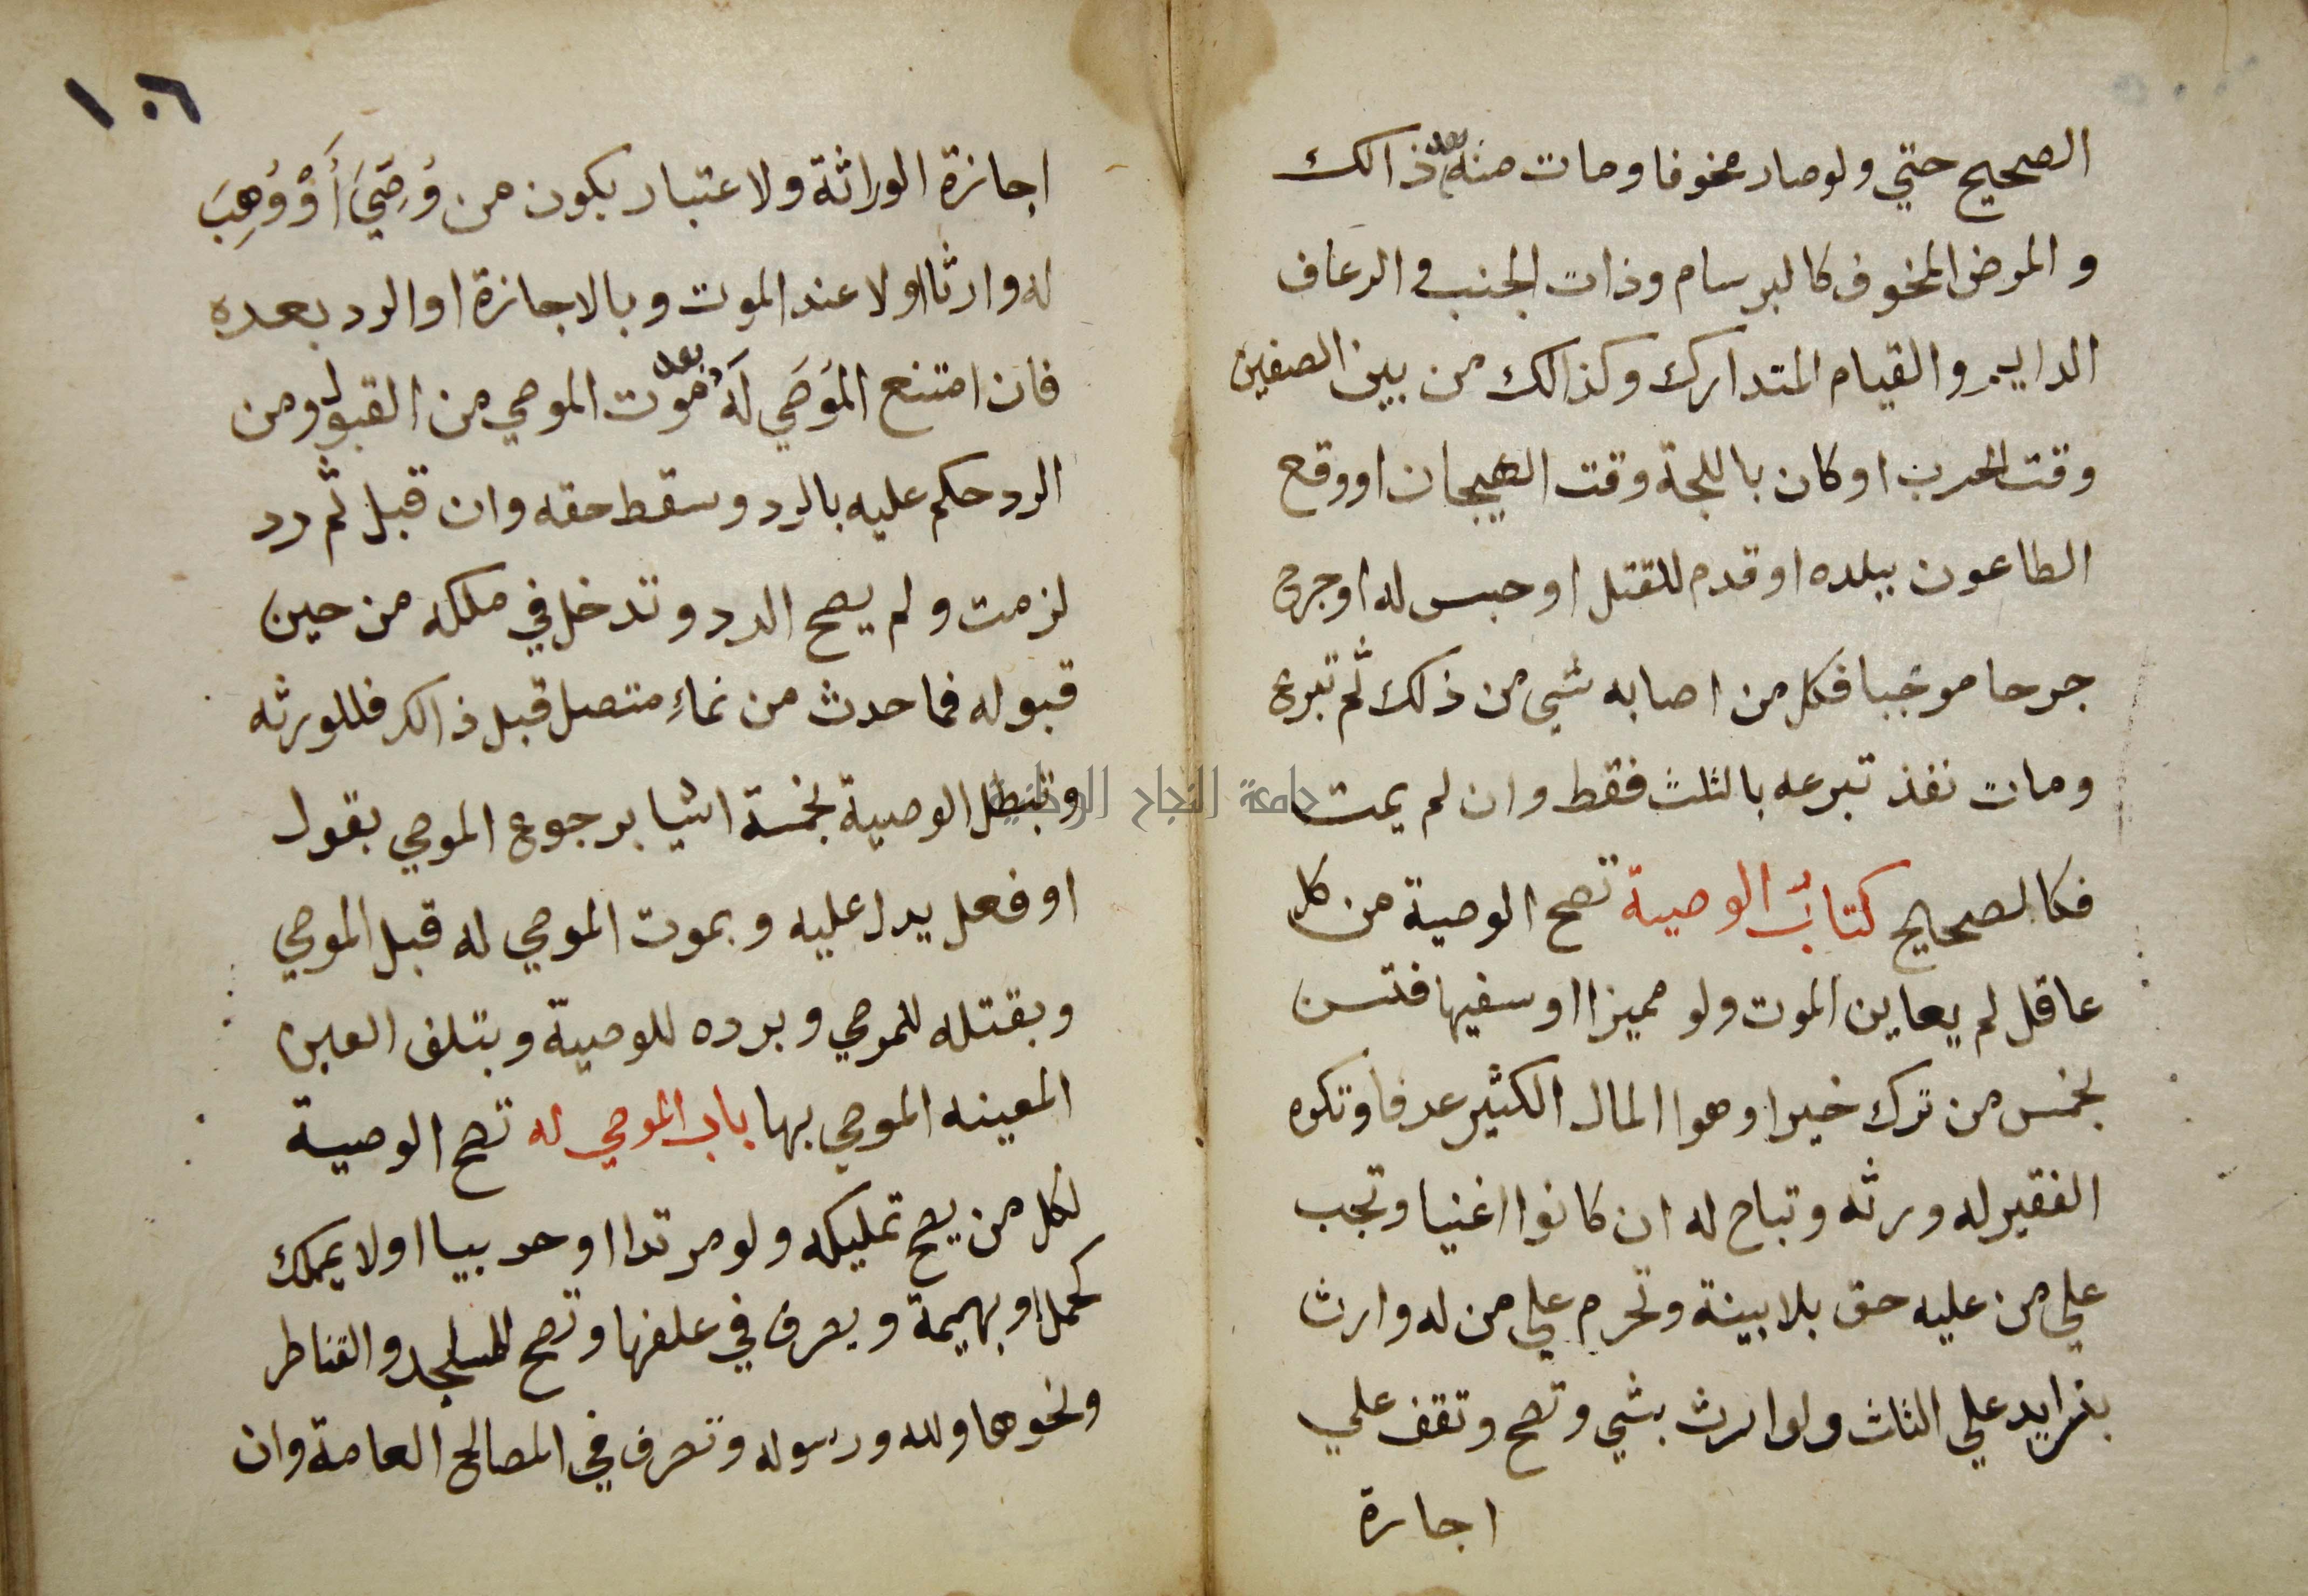 الصحيح حتي ولو صار مخوفا ومات منه بعد ذالك
والمرض المخوف كالبرسام وذات الجنب والرعاف
الدايم والقيام المتدارك وكذالك من بين الصفين
وقت الحرب او كان باللجة وقت الهيجان او وقع
الطاعون ببلده او قدم للقتل او حبس له او جرح
جرحا موحبا فكل من اصابه شي من ذلك ثم تبرع
ومات نفذ تبرعه بالثلث فقط وان لم يمت
فكالصحيح كتاب الوصية تصح الوصية من كل
عاقل لم يعاين الموت ولو مميزا او سفيها فتسن
بخمس من ترك خيرا وهوا المال الكثير عرفا وتكره
الفقير له ورثه وتباح له ان كانوا اغنيا وتجب
علي من عليه حق بلا بينة وتحرم علي من له وارث
بزايد علي الثلث ولوارث بشي وتصح وتقف علي
اجازة
١٠٦
اجازة الوراثة ولاعتبار بكون من وُصِّيَ أَوْ وُهِبَ
له وارثا اولا عند الموت وبالاجازة او الرد بعده
فان امتنع الموَصَي لَهُ بعد موت الموصي من القبول ومن
الرد حكم عليه بالرد وسقط حقه وان قبل ثم رد
لزمت ولم يصح الرد وتدخل في ملكه من حين
قبوله فما حدث من نماءِ متصل قبل ذالك فللورثه
وتبطل الوصية بخمسة اشيا برجوع الموصي بقول
او فعل يدل عليه وبموت الموصي له قبل الموصي
وبقتله للموصي وبرده للوصية وبتلف العين
المعينه الموصي بها باب الموصي له تصح الوصية
لكل من يصح تمليكه ولو مرتدا او حربيا او لا يملك
كحمل او بهيمة ويصرف في علفها وتصح للمساجد والقناطر
ونحوها ولله ورسوله وتصرف في المصالح العامة وان
جامعة النجاح الوطنية